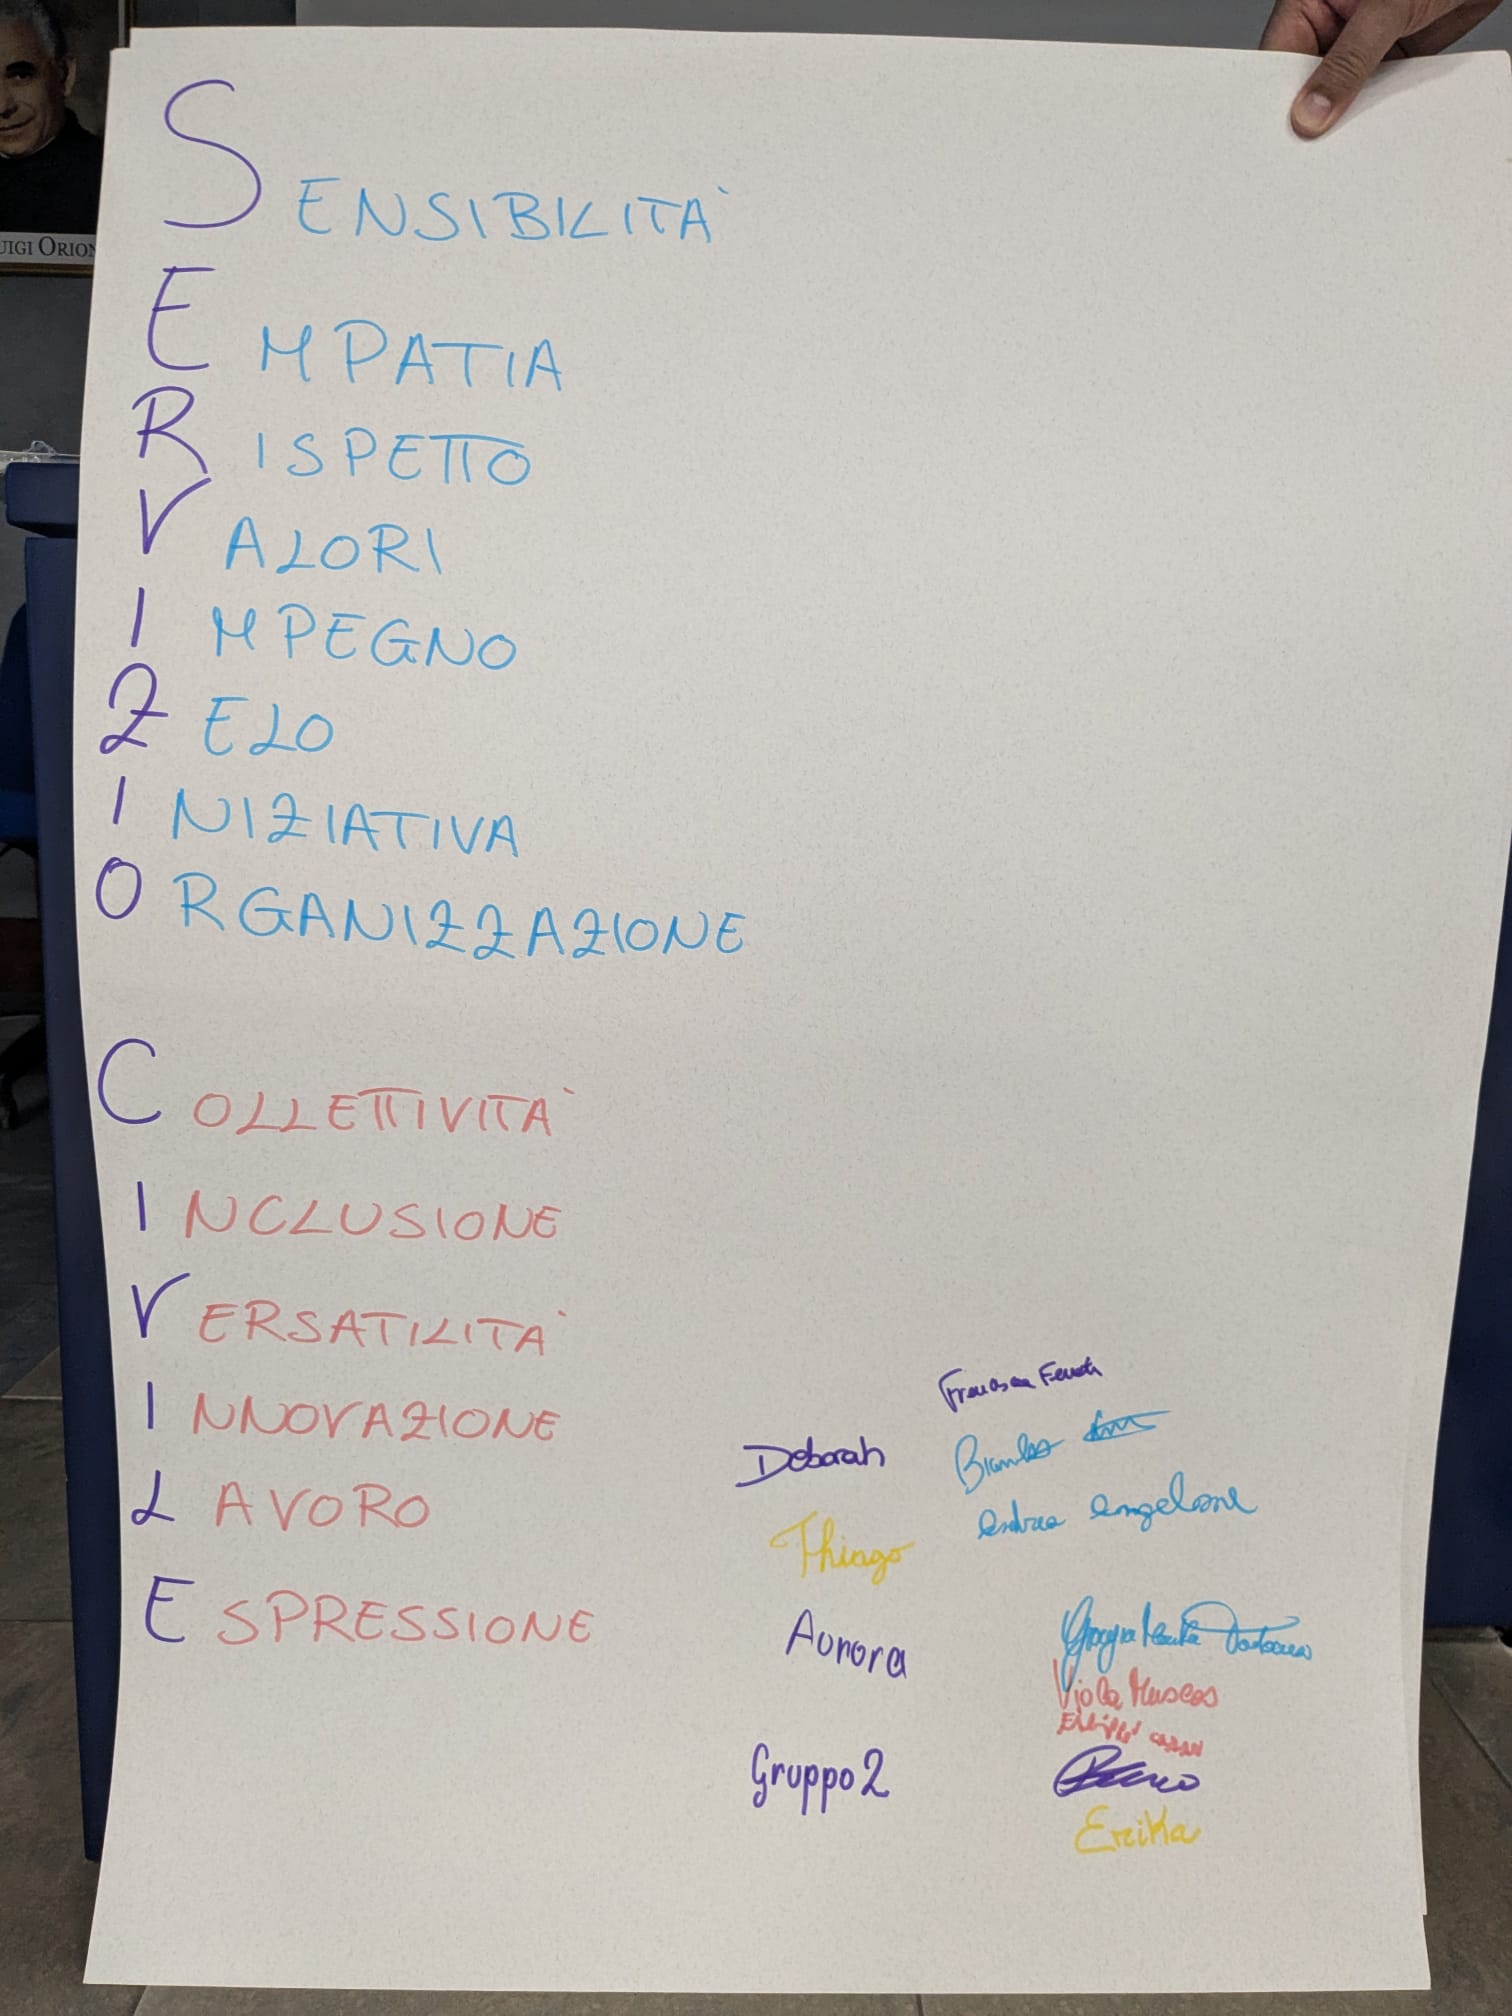 UIGI ORION
SENSIBILITÀ
EMPATIA
RISPETTO
VALORI
IMPEGNO
ZELO
INIZIATIVA
ORGANIZZAZIONE
COLLETTIVITÀ
INCLUSIONE
VERSATILITÀ
INNOVAZIONE
LAVORO
ESPRESSIONE
Francesca
Deborah
Andrea Angelone
Thiago
Aurora
Viola
Gruppo 2
Erika